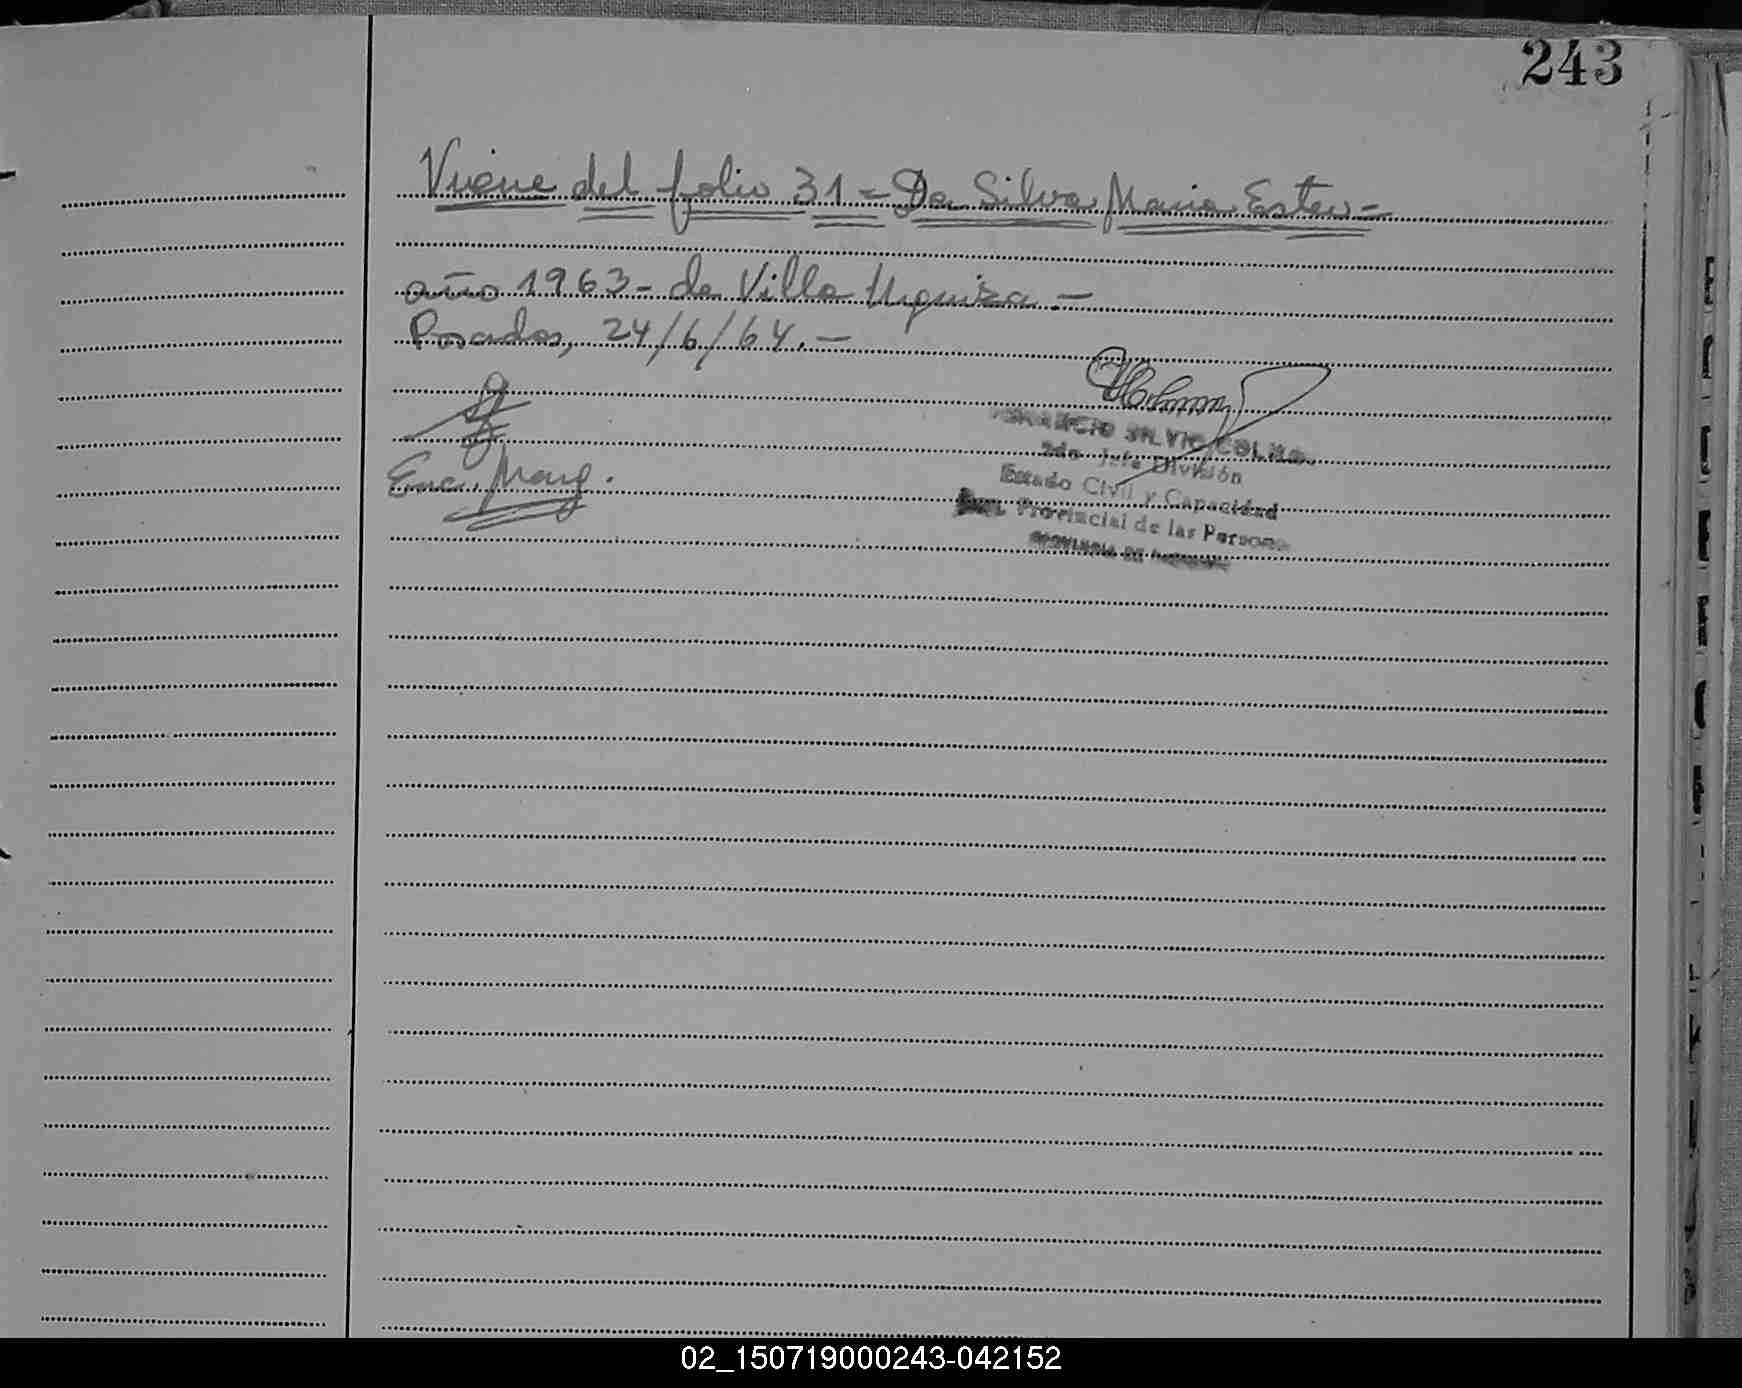 243
Viene del folio 31 = Da Silva Maria Ester -
año 1963 - de Villa Urquiza . -
Posadas, 24/6/64. -
Enc. Marg.
SILVIO
2do Jefe División
Estado Civil y Capacidad
Provincial de las Personas
PROVINCIA DE
02_150719000243-042152